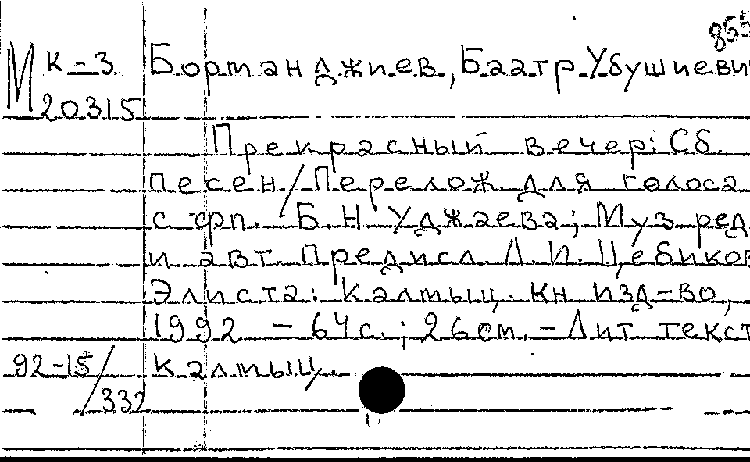 855
М К-3 Бормanджиев, Баатр Убушиеви
20315
Прекрасный вечер: Сб.
песен / Перелож для голоса
с фп. Б. Н Уджаева; Муз ред
и авт предисл Л И. Цебиков
Элиста: Калмыц. кн изд-во,
1992 - 64 с.; 26 см. - Лит текст
92-15/332 калмыц.